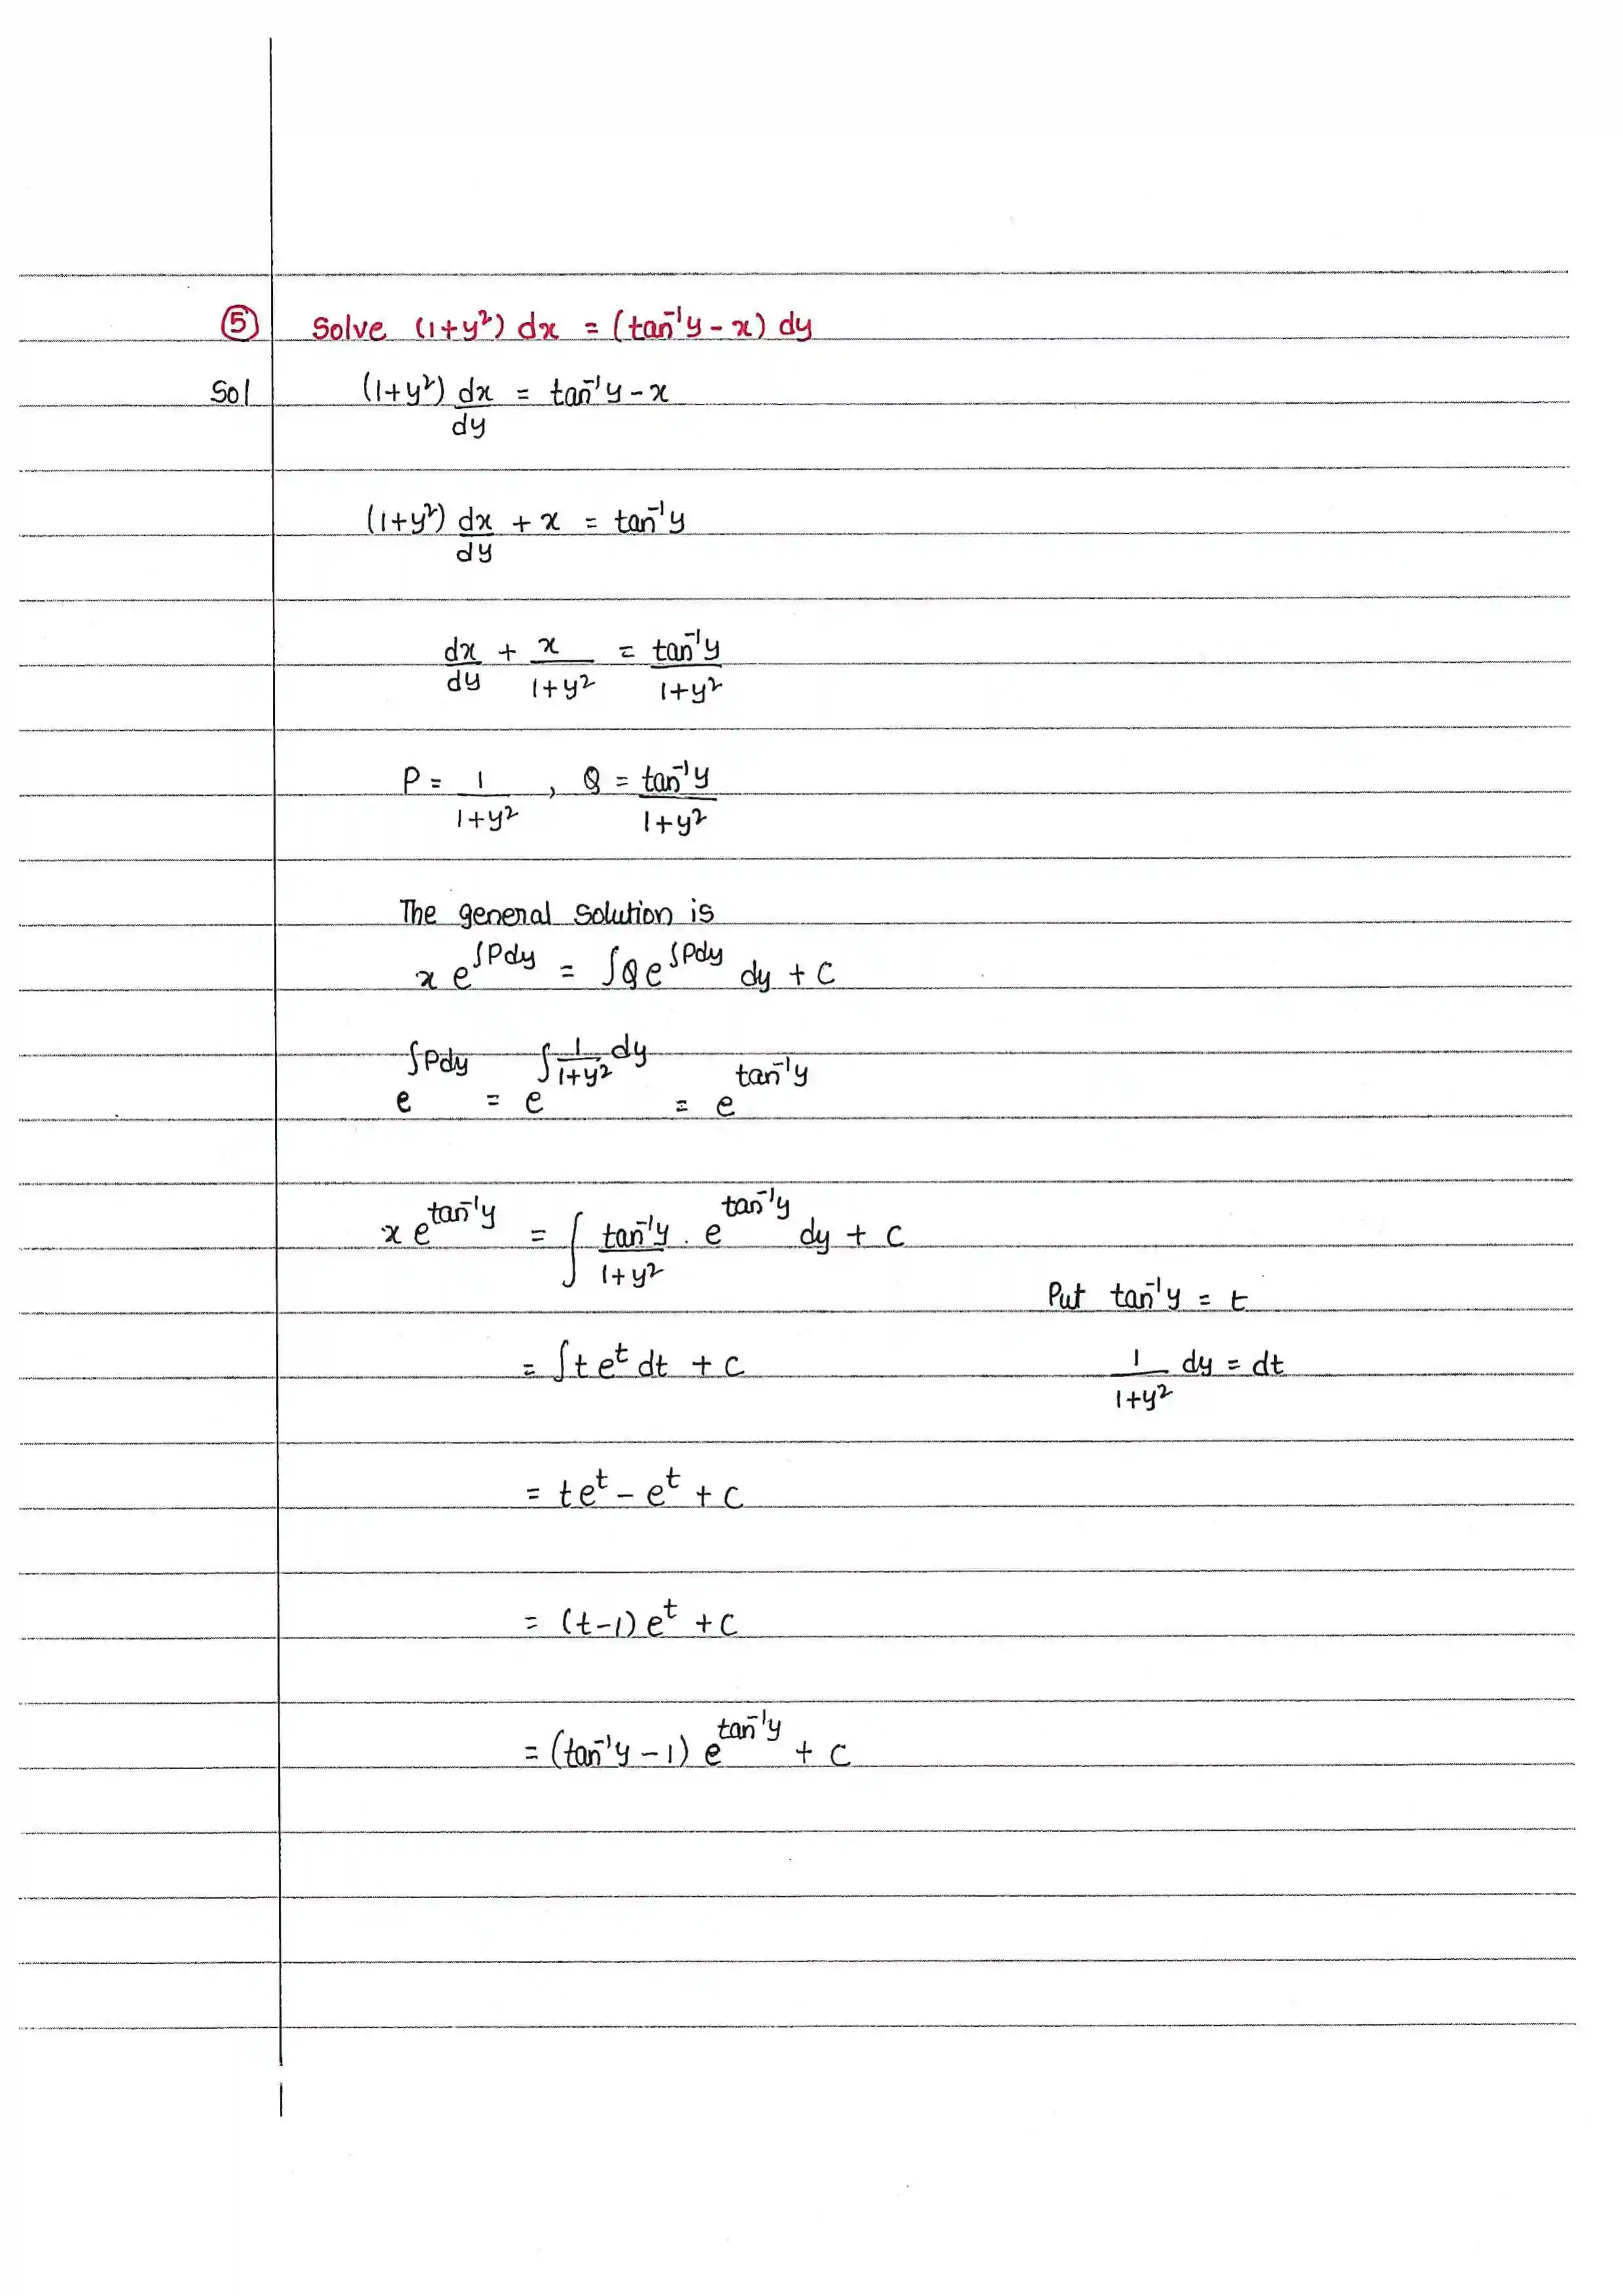 ⑤ Solve (1+y²) dx = (tan⁻¹y - x) dy
Sol (1+y²) dx/dy = tan⁻¹y - x
(1+y²) dx/dy + x = tan⁻¹y
dx/dy + x/(1+y²) = tan⁻¹y/(1+y²)
P = 1/(1+y²), Q = tan⁻¹y/(1+y²)
The general solution is
x e^(∫Pdy) = ∫Q e^(∫Pdy) dy + C
e^(∫Pdy) = e^(∫ 1/(1+y²) dy) = e^(tan⁻¹y)
x e^(tan⁻¹y) = ∫ tan⁻¹y/(1+y²) . e^(tan⁻¹y) dy + C
Put tan⁻¹y = t
= ∫t e^t dt + C
1/(1+y²) dy = dt
= t e^t - e^t + C
= (t-1) e^t + C
= (tan⁻¹y - 1) e^(tan⁻¹y) + C